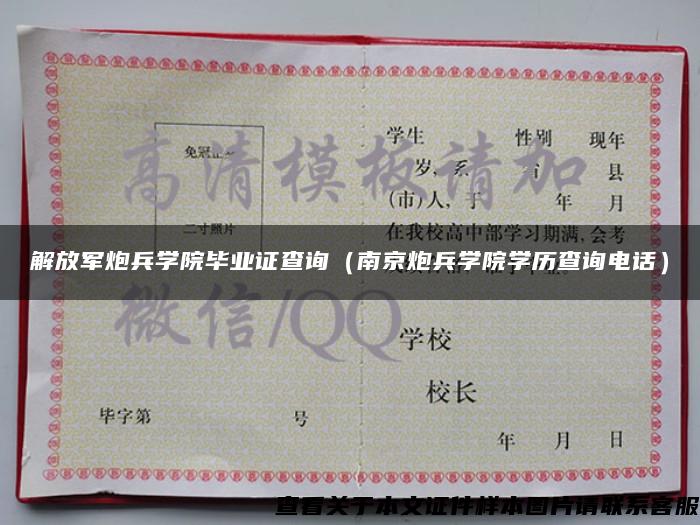 学生 性别 现年
免冠正
岁,系 省 县
高清模板请加
(市)人,于 年 月
二寸照片
在我校高中部学习期满,会考
解放军炮兵学院毕业证查询(南京炮兵学院学历查询电话)
微信/QQ
学校
校长
毕字第 号
年 月 日
查看关于本文证件样本图片请联系客服